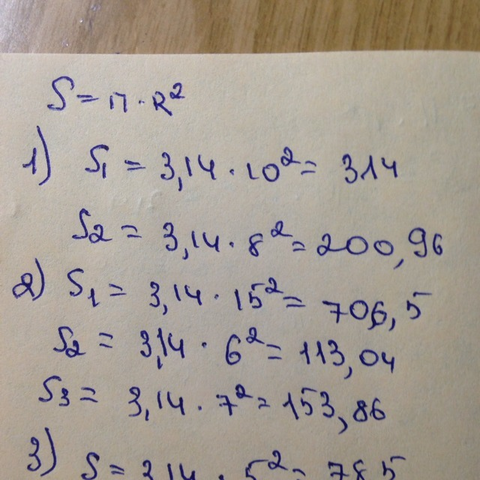 S = π · R²
1) S₁ = 3,14 · 10² = 314
S2 = 3,14 · 8² = 200,96
2) S₁ = 3,14 · 15² = 706,5
S₂ = 3,14 · 6² = 113,04
S₃ = 3,14 · 7² = 153,86
3) S = 3,14 · 5² = 785